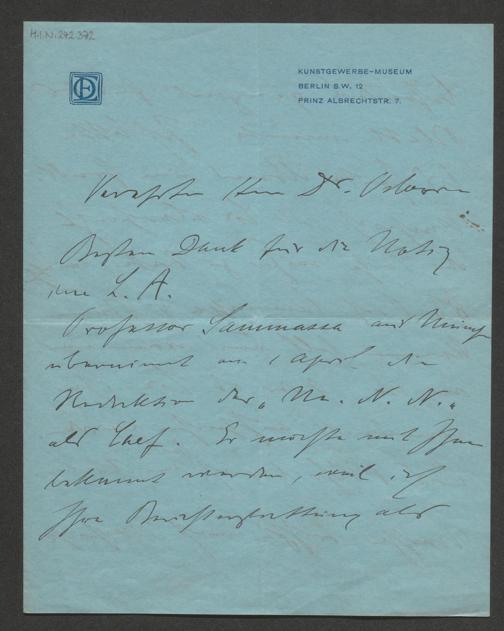 H.I.N. 242 372
KUNSTGEWERBE-MUSEUM
BERLIN S.W. 12
PRINZ ALBRECHTSTR. 7.
Verehrter Herr Dr. Osborn
Besten Dank für die Notiz
im L. A.
Professor Samassa aus
übernimmt am 1 April die
Redaktion der „M. N. N."
als Chef. Er möchte mit Ihnen
bekannt werden, weil ich
Ihre Berichterstattung als